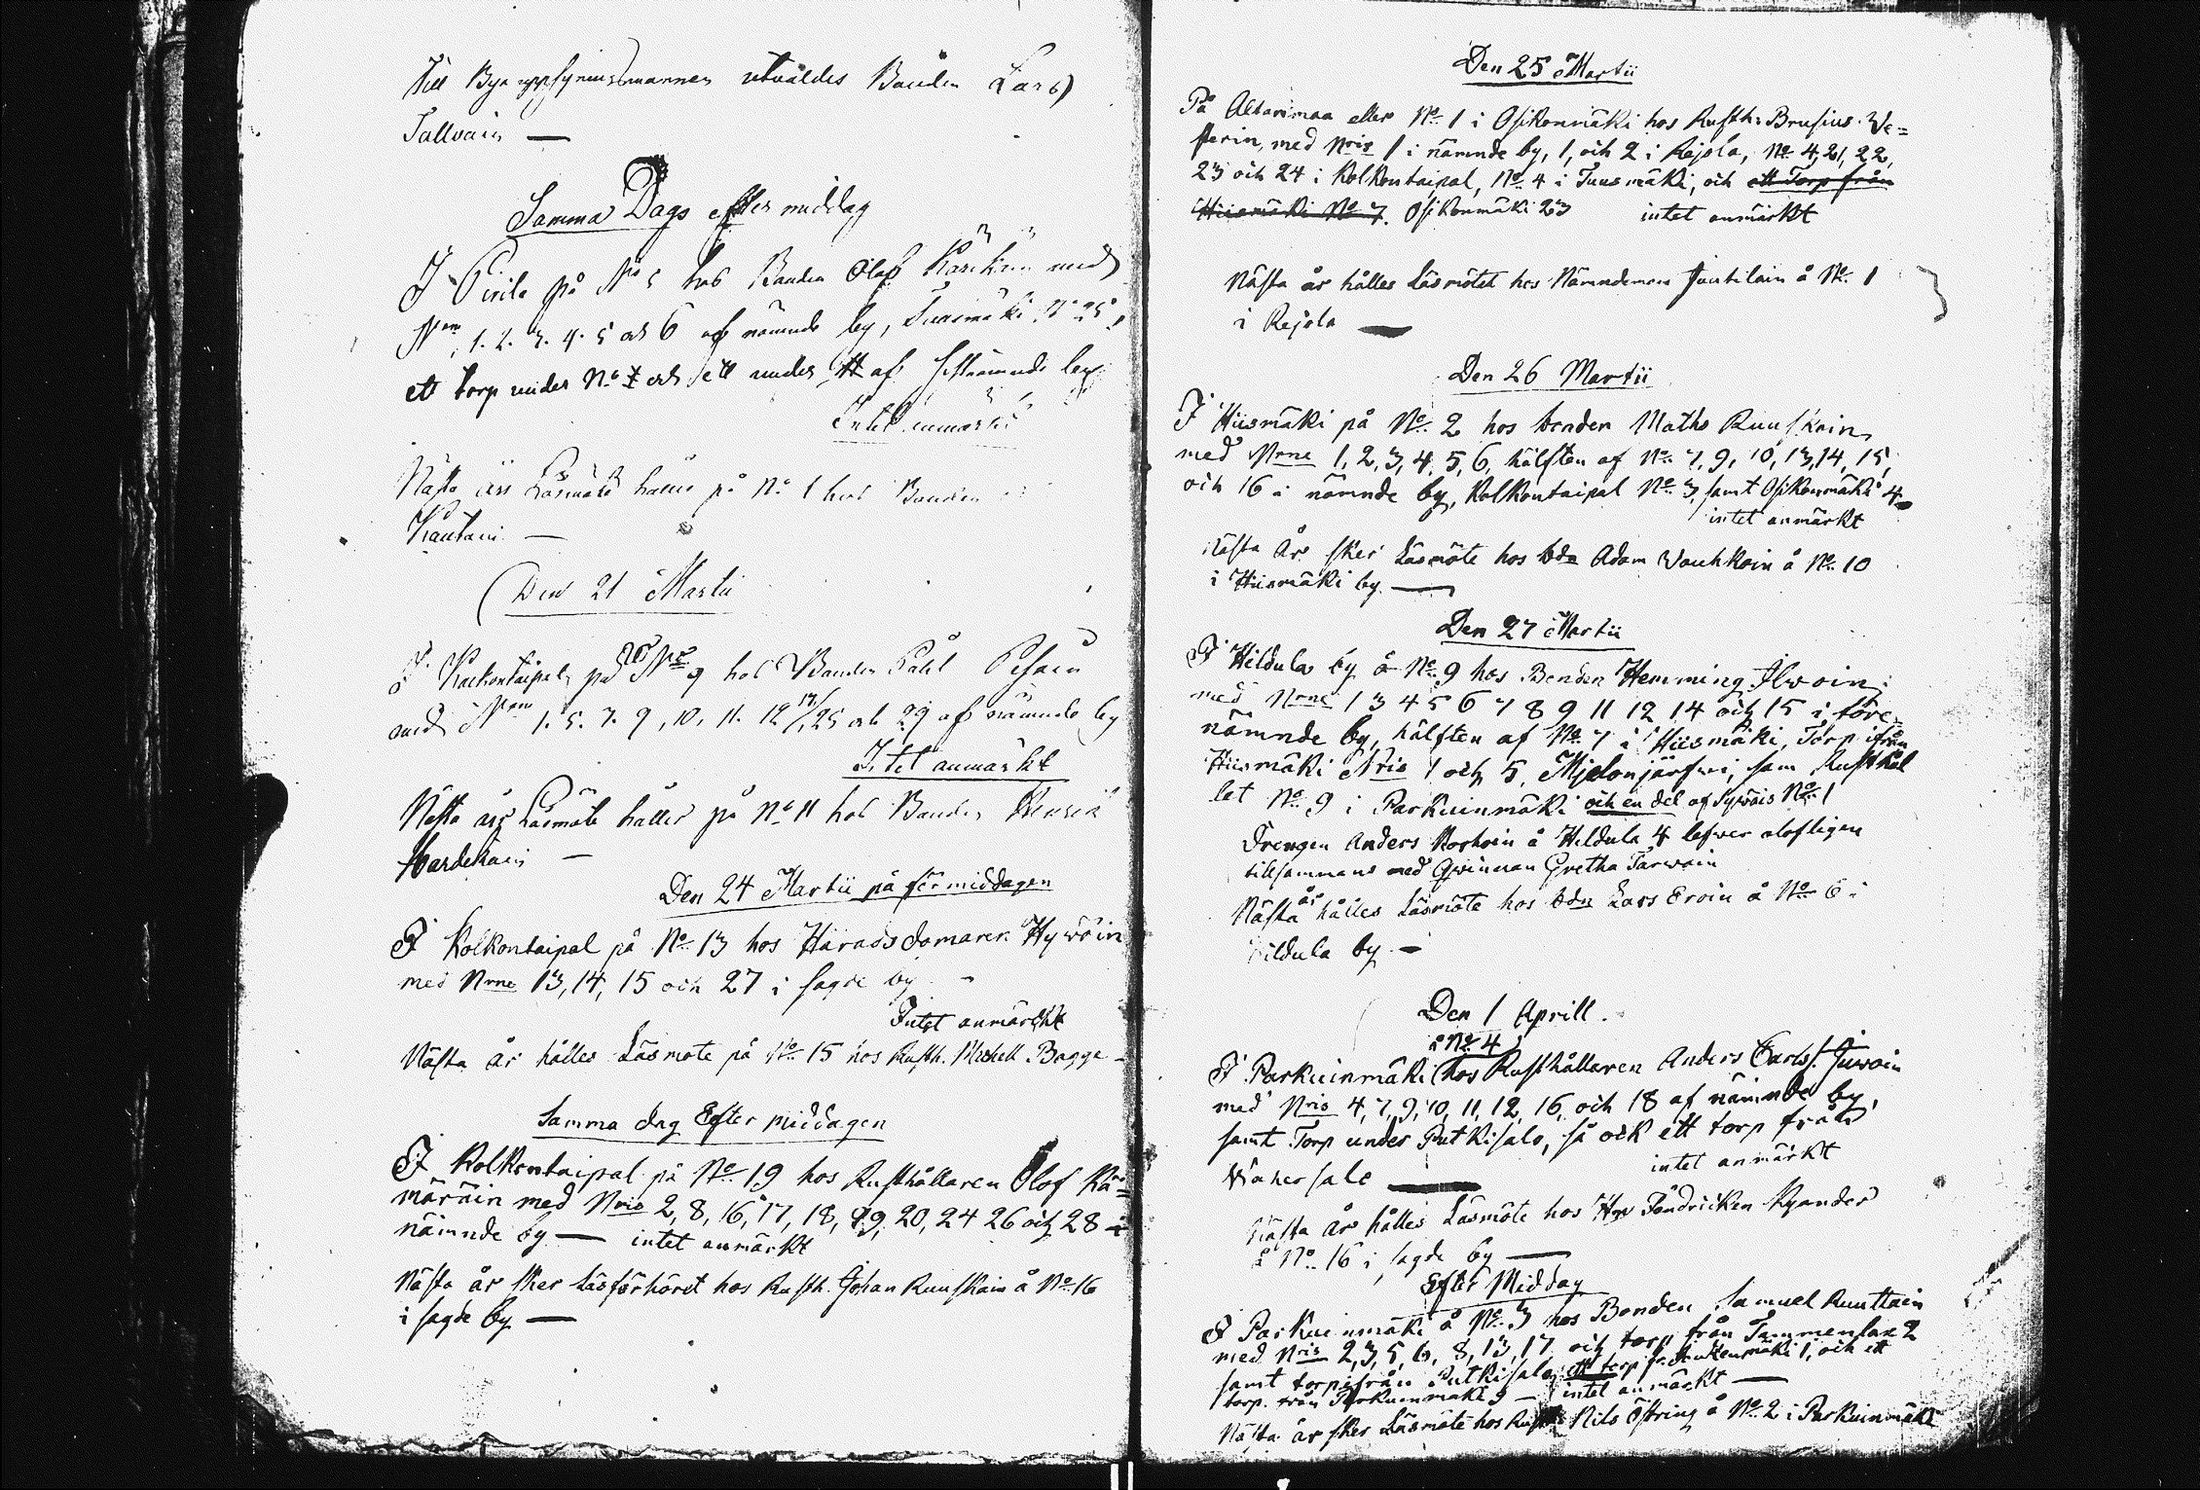 Till Bya uppsyningsmannen utvaldes Bonden Lars
Tallvain —
Samma Dags efter middag
I Pirila på No 5 hos Bonden Olof med
1. 2. 3. 4. 5 och 6 af nämnde by, Tuusmäki No 25,
ett torp under No och ett under af sistnämnde by
Intet anmärkt
Nästa års Läsmöte hålles på No 1 hos Bonden
Kautain —
Den 21 Martii
I Kolkontaipal på No 9 hos Bonden Påhl Pesain
med 1. 5. 7. 9, 10. 11. 12 25 och 29 af nämnde by
Intet anmärkt
Nästa års Läsmöte hålles på No 11 hos Bonden
—
Den 24 Martii på förmiddagen
I Kolkontaipal på No 13 hos Häradsdomaren Hywöin
med Nrne 13, 14, 15 och 27 i sagde by
Intet anmärkt
Nästa år hålles Läsmöte på No 15 hos Rusth. Michell Bagge -
Samma dag Efter middagen
I Kolkontaipal på No 19 hos Rusthållaren Olof Kä=
märäin med Nris 2, 8, 16, 17, 18, 19, 20, 24 26 och 28 i
nämnde by — intet anmärkt
Nästa år sker Läsförhöret hos Rusth. Johan Ruuskain å No 16
i sagde by —
Den 25 Martii
På Altarimaa eller No 1 i Osikonmäki hos Rusth: Brusius We=
sterin, med Nris 1 i nämnde by, 1, och 2 i Rejola, No 4, 21, 22,
23 och 24 i Kolkontaipal, No 4 i Tuusmäki, och ett Torp från
Hiismäki No 7. Osikonmäki 23 intet anmärkt
Nästa år hålles Läsmötet hos Nämndeman Juutilain å No 1
i Rejola —
Den 26 Martii
I Hiismäki på No 2 hos bonden Maths Ruuskain
med Nrne 1, 2, 3, 4, 5, 6, hälften af No 7, 9, 10, 13, 14, 15,
och 16 i nämnde by, Kolkontaipal No 3, samt Osikonmäki 4
intet anmärkt
Nästa År sker Läsmöte hos bdn Adam Wauhkoin å No 10
i Hiismäki by. —
Den 27 Martii
I Hildula by å No 9 hos Bonden Hemming Ilwoin
med Nrne 1 3 4 5 6 7 8 9 11 12 14 och 15 i före=
nämnde by, hälften af No 7 i Hiismäki, Torp ifrån
Hiismäki Nris 1 och 5, Mjelonjärfwi, sam Rusthål
let No 9 i Parkuinmäki och en del af Sywäis No 1
Drengen Anders Korhoin å Hildula 4 lefwer olofligen
tillsammans med Qwinnan Gretha Tarwain
Nästa år hålles Läsmöte hos bdn Lars Eroin å No 6 i
Hildula by —
Den 1 Aprill.
å No 4
I Parkuinmäki hos Rusthållaren Anders Carlss. Juwoin
med Nris 4, 7, 9, 10, 11, 12, 16, och 18 af nämnde by,
samt Torp under Putkisalo, så ock ett torp från
Wahersalo — intet anmärkt
Nästa år hålles Läsmöte hos Hr Fändricken Kyander
å No 16 i sagde by —
Efter Middag
I Parkuinmäki å No 3 hos Bonden Samuel Ruuttain
med Nris 2, 3, 5, 6, 8, 13, 17 och torp från Tammenlax 2
samt torp ifrån Putkisalo, ett torp fr. 1, och ett
torp från Parkuinmäki 9 — intet anmärkt —
Nästa år sker Läsmöte hos Rusth. Nils Östring å No 2 i Parkuinmäki